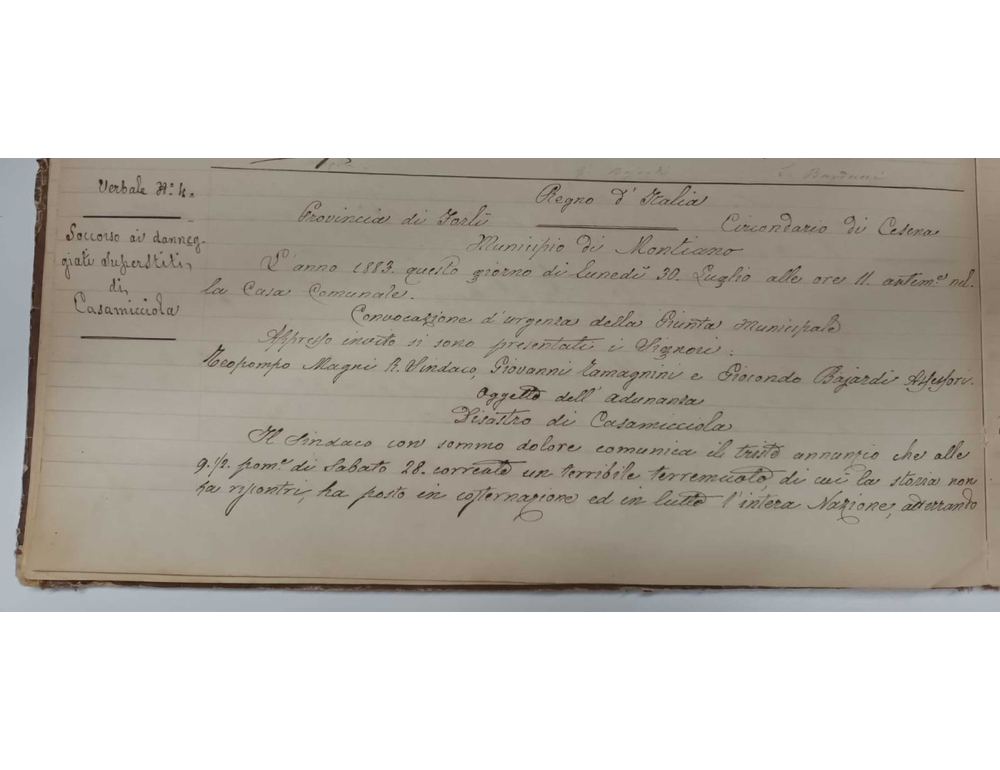 Verbale N.º 4.
Soccorso ai danneg-
giati superstiti
di
Casamicciola
Regno d'Italia
Provincia di Forlì
Circondario di Cesena
Municipio di Montiano
L'anno 1883. questo giorno di lunedì 30. Luglio alle ore 11. antime nel-
la Casa Comunale.
Convocazione d'urgenza della Giunta Municipale
Appresso invito si sono presentati i Signori:
Teopompo Magni R. Sindaco, Giovanni Tamagnini e Giocondo Bajardi Assessori.
Oggetto dell'adunanza
Disastro di Casamicciola
Il Sindaco con sommo dolore comunica il triste annunzio che alle
9.½. pome di Sabato 28. corrente un terribile terremuoto, di cui la storia non
ha riscontri, ha posto in costernazione ed in lutto l'intera Nazione, atterrando